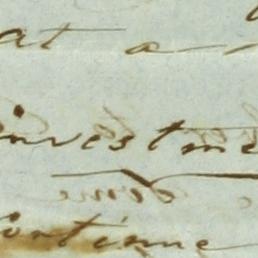 at a
investme
Continue